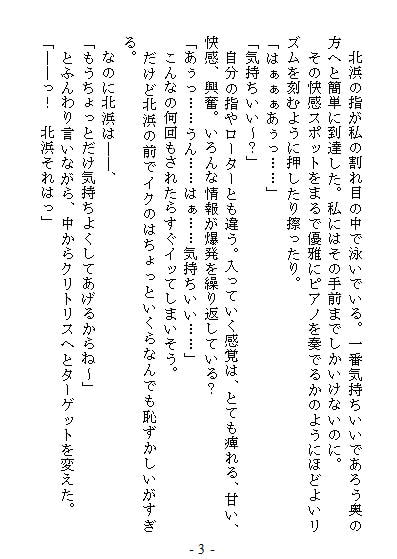 北浜の指が私の割れ目の中で泳いでいる。一番気持ちいいであろう奥の
方へと簡単に到達した。私にはその手前までしかいけないのに。
その快感スポットをまるで優雅にピアノを奏でるかのようにほどよいリ
ズムを刻むように押したり擦ったり。
「はぁぁぁあぅっ……」
「気持ちいい～？」
自分の指やローターとも違う。入っていく感覚は、とても痺れる、甘い、
快感、興奮。いろんな情報が爆発を繰り返している？
「あぅっ……うん……はぁ……気持ちいい……」
こんなの何回もされたらすぐイッてしまいそう。
だけど北浜の前でイクのはちょっといくらなんでも恥ずかしいがすぎ
る。
なのに北浜は――、
「もうちょっとだけ気持ちよくしてあげるからね～」
とふんわり言いながら、中からクリトリスへとターゲットを変えた。
「――っ！　北浜それはっ」
- 3 -